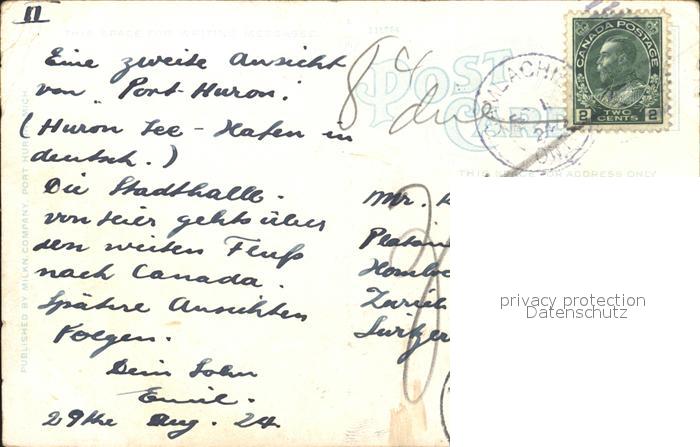 II
THIS SPACE FOR WRITING MESSAGES
Eine zweite Ansicht
von "Port-Huron."
(Huron See - Hafen in
deutsch.)
Die Stadthalle.
von hier gehts über
den weiten Fluß
nach Canada.
Spätere Ansichten
Folgen.
Dein Sohn
Emil.
29the Aug. 24
PUBLISHED BY MILKN COMPANY, PORT HURON, MICH.
8 c
due
POST
CARD
CANADA POSTAGE
2 TWO CENTS 2
ONT
THIS SPACE FOR ADDRESS ONLY
Mr.
Zurich
privacy protection
Datenschutz